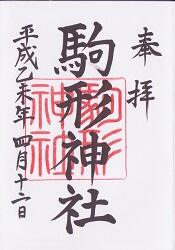 奉拝
駒形神社
平成乙未年四月十二日
駒形
神社